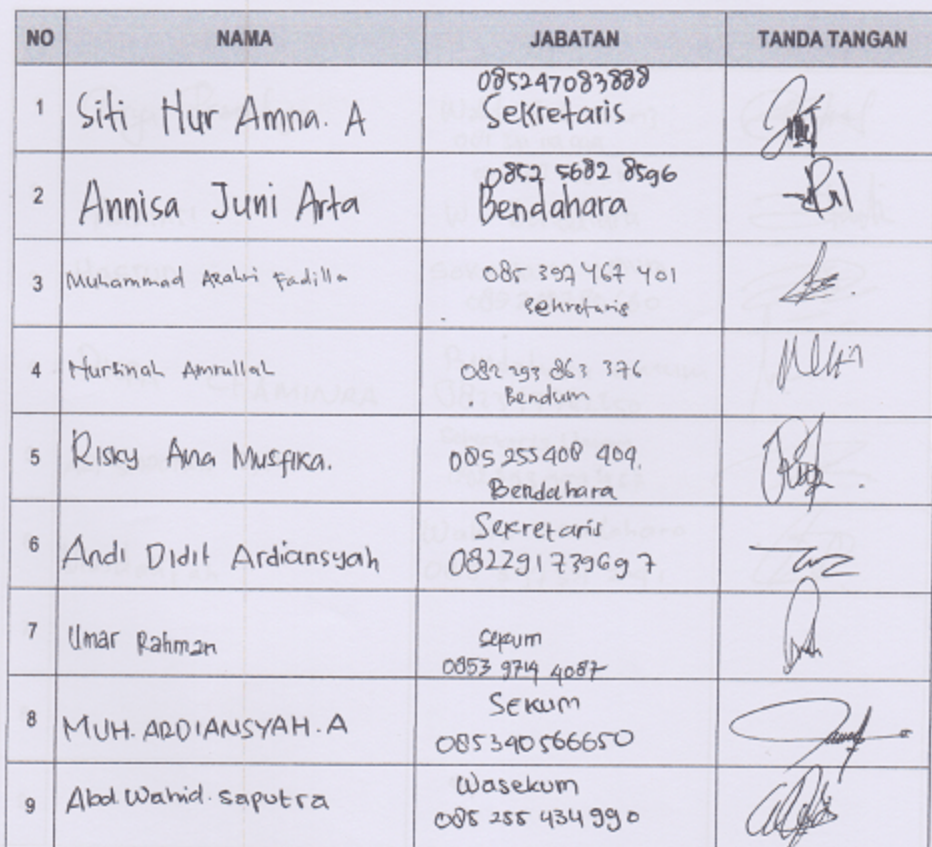 NO NAMA JABATAN TANDA TANGAN
1 Siti Nur Amna. A 085247083888
Sekretaris
2 Annisa Juni Arta 0852 5682 8596
Bendahara
3 Muhammad Fadilla 085 397 467 401
Sekretaris
4 Nursinah Amrullah 082 293 863 376
Bendum
5 Risky Ana Musfika. 085 255 408 404.
Bendahara
6 Andi Didit Ardiansyah Sekretaris
082291739697
7 Umar Rahman Sekum
0853 9714 4087
8 MUH. ARDIANSYAH. A Sekum
085340566650
9 Abd. Wahid. Saputra Wasekum
085 255 434 990